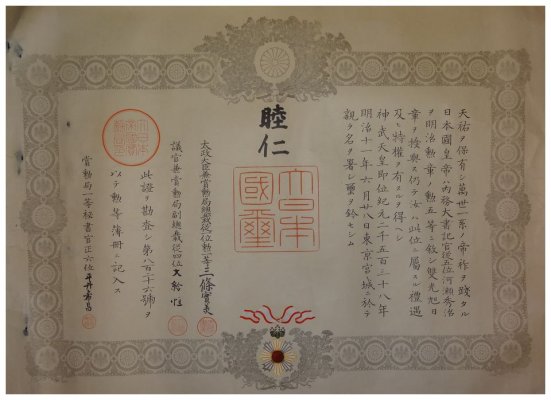 天祐ヲ保有シ萬世一系ノ帝祚ヲ踐タル
日本國皇帝ハ內務大書記官從五位河瀨秀治
ヲ明治勲章ノ勲五等ニ敘シ雙光旭日
章ヲ授與ス仍テ汝ハ此位ニ屬スル禮遇
及ヒ特權ヲ有スルヲ得ヘシ
神武天皇卽位紀元二千五百三十八年
明治十一年六月廿八日東京宮城ニ於テ
親ラ名ヲ署シ璽ヲ鈐セシム
睦仁
大日本
國璽
太政大臣兼賞勲局總裁從一位勲一等三條實美
議官兼賞勲局副總裁從四位大給恒
此證ヲ勘査シ第八百二十六號ヲ
以テ勲等簿冊ニ記入ス
賞勲局一等秘書官正六位平井希昌